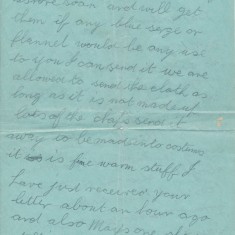 before soon and will get
them if any blue serge or
flannel would be any use
to you I can send it we are
allowed to send the cloth as
long as it is not made up
lots of the chaps send it
away to be made into costumes
it is fine warm stuff I
have just received your
letter about an hour ago
and also Mays one